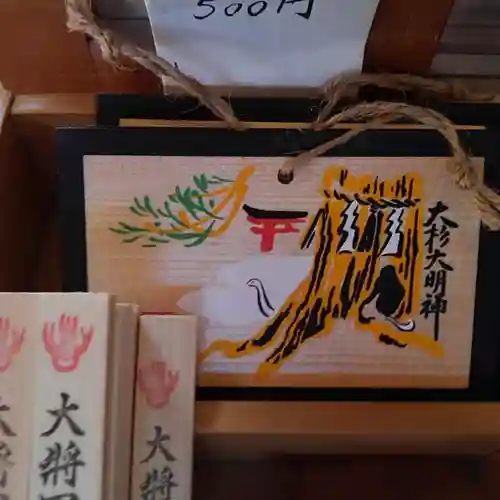 500円
大杉大明神
大將
大將
大將